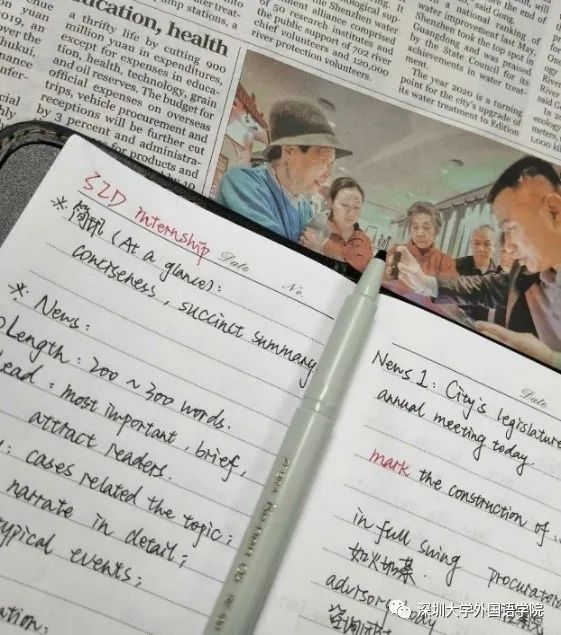 2019, an
over the
ducation, health
a thrifty life by cutting 900
million yuan in expenditures,
except for expenses in educa-
tion, health, technology, grain
and oil reserves. The budget for
official expenses on overseas
trips, vehicle procurement and
receptions will be further cut
by 3 percent and administra-
for products and
of 50 research institutes and
the public support of 702 river
chief volunteers and 120,000
river protection volunteers.
said Gong.
water improvement last May,
Shenzhen took the top spot in
Guangdong and was praised
by the State Council for its
achievements in water treat-
ment.
The year 2020 is a turning
point for the city's upgrade of
its water treatment to Edition
SZD internship
Date No.
* 简讯 (At a glance):
conciseness, succinct summary
* News:
Length: 200 ~ 300 words.
Lead: most important, brief,
attract readers.
: cases related the topic;
narrate in detail;
typical events;
ation:
Date
News 1: City's legislature
annual meeting today.
mark the construction of...
in full swing procurator
如火如荼
advisory body
咨询机构
深圳大学外国语学院